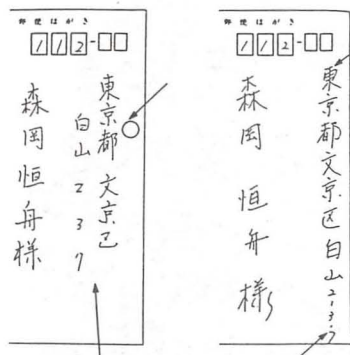 郵便はがき
112-
東京都文京区
白山 2 3 7
森岡恒舟様
郵便はがき
112-
東京都文京区白山2-3-7
森岡 恒舟 様